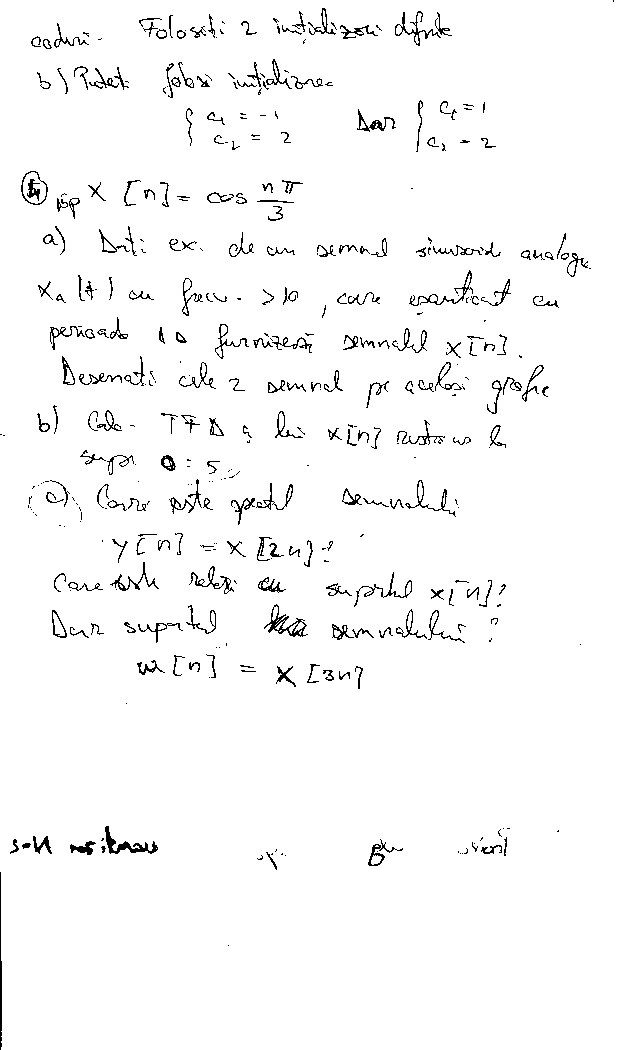 coduri. Folosiți 2 inițializări diferite
b) Puteți folosi inițializarea
{ c₁ = -1
c₂ = 2
Dar { c₁ = 1
c₂ = 2
④ 15p x[n] = cos nπ/3
a) Dați ex. de un semnal sinusoid analogic
xₐ(t) cu frecv. > 10, care eșantionat cu
perioada furnizează semnalul x[n].
Desenați cele 2 semnal pe același grafic
b) Calc. TFD a lui x[n] la
supr 0:5
c) Care este semnalului
y[n] = x[2n]?
Care este relația cu suportul x[n]?
Dar suportul semnalului?
w[n] = x[3n]